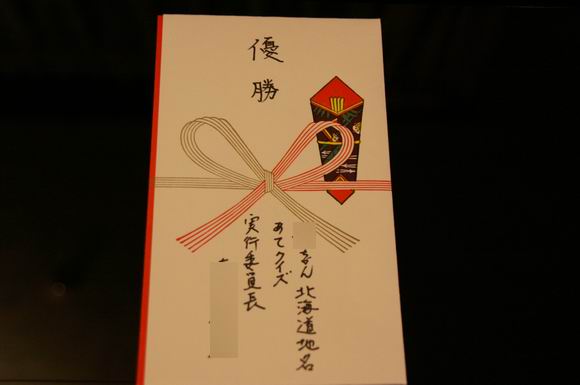 優勝
さん 北海道地名
あてクイズ
実行委員長